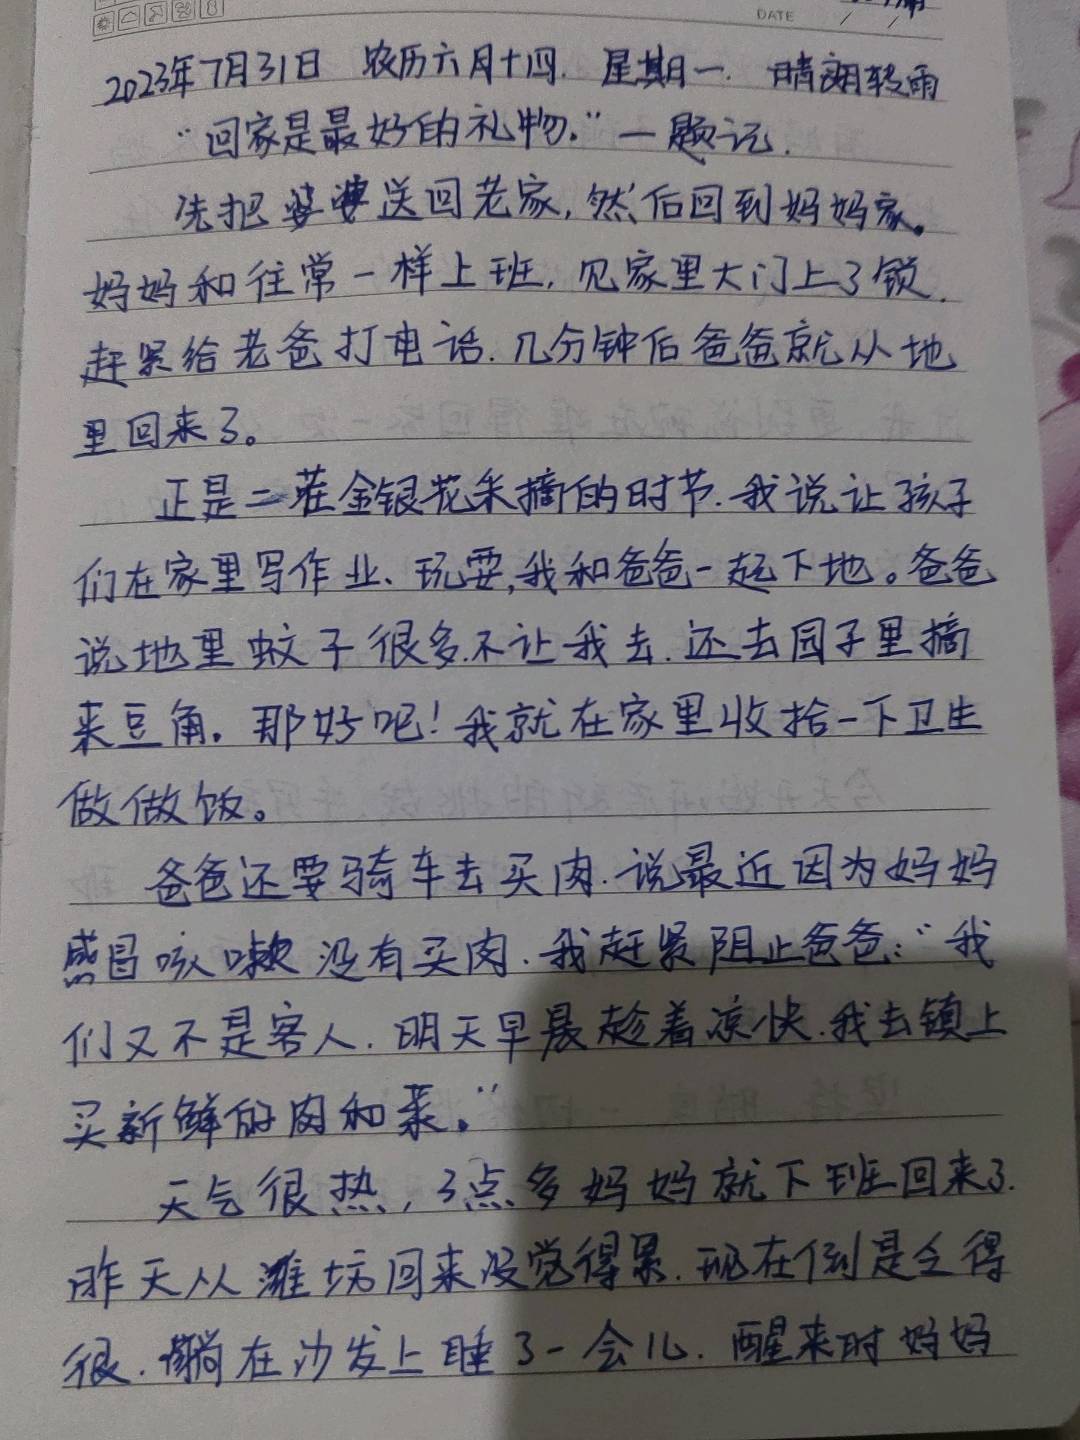 DATE / /
2023年7月31日 农历六月十四. 星期一. 晴朗转雨
“回家是最好的礼物.”一题记.
先把婆婆送回老家,然后回到妈妈家。
妈妈和往常一样上班,见家里大门上了锁.
赶紧给老爸打电话.几分钟后爸爸就从地
里回来了。
正是二茬金银花采摘的时节.我说让孩子
们在家里写作业、玩耍,我和爸爸一起下地。爸爸
说地里蚊子很多.不让我去.还去园子里摘
来豆角。那好吧!我就在家里收拾一下卫生
做做饭。
爸爸还要骑车去买肉.说最近因为妈妈
感冒咳嗽没有买肉.我赶紧阻止爸爸:“我
们又不是客人.明天早晨趁着凉快.我去镇上
买新鲜的肉和菜。”
天气很热,3点多妈妈就下班回来了.
昨天从潍坊回来没觉得累.现在倒是乏得
很.躺在沙发上睡了一会儿.醒来时妈妈